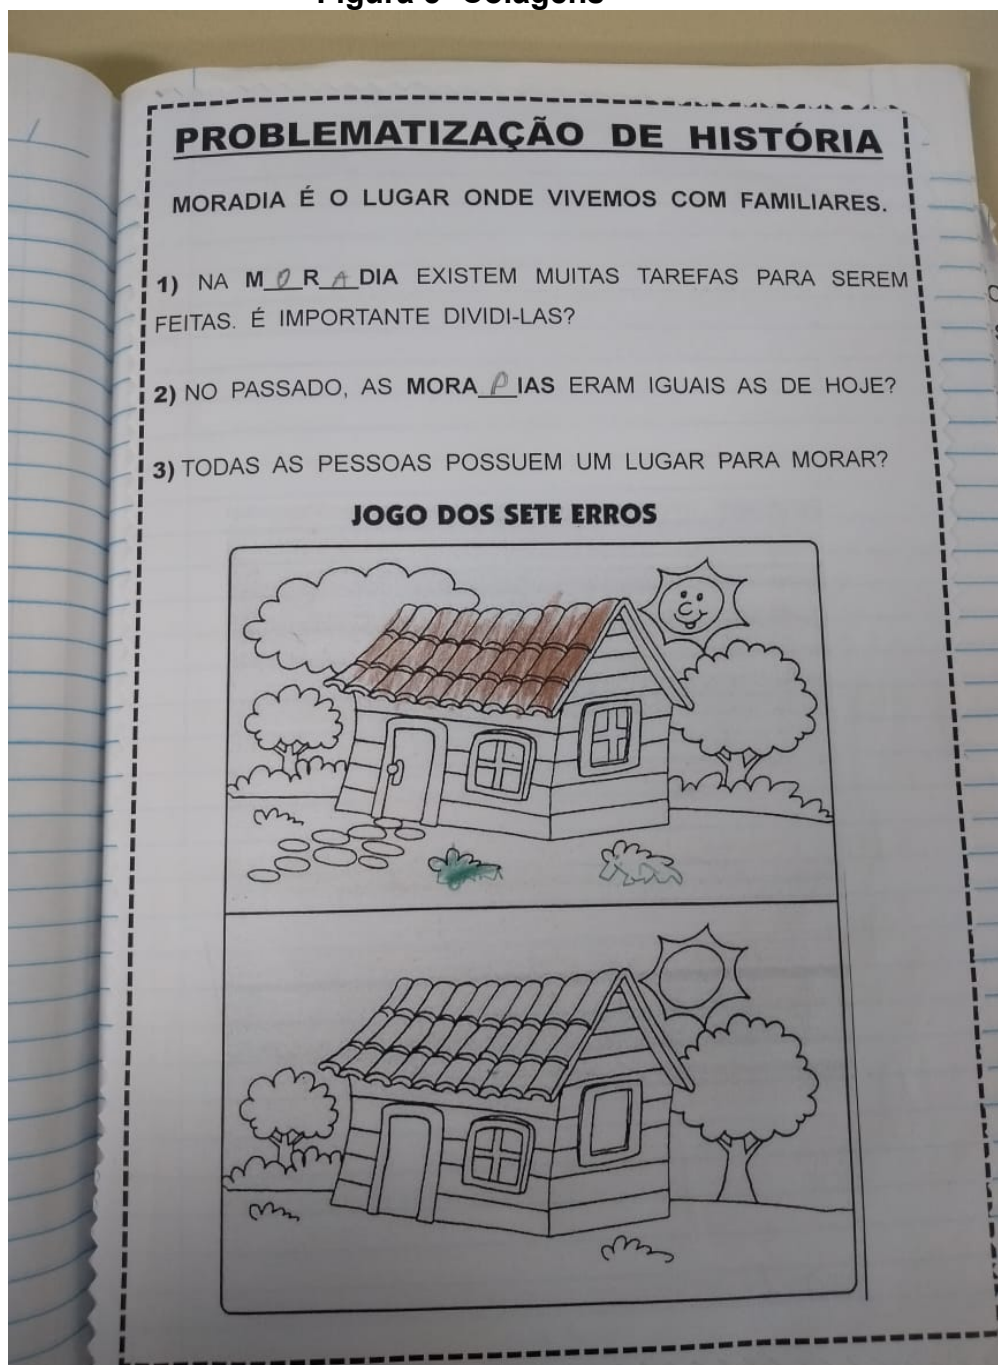 Figura 3- Colagens
PROBLEMATIZAÇÃO DE HISTÓRIA
MORADIA É O LUGAR ONDE VIVEMOS COM FAMILIARES.
1) NA M_O_R_A_DIA EXISTEM MUITAS TAREFAS PARA SEREM
FEITAS. É IMPORTANTE DIVIDI-LAS?
2) NO PASSADO, AS MORA_D_IAS ERAM IGUAIS AS DE HOJE?
3) TODAS AS PESSOAS POSSUEM UM LUGAR PARA MORAR?
JOGO DOS SETE ERROS